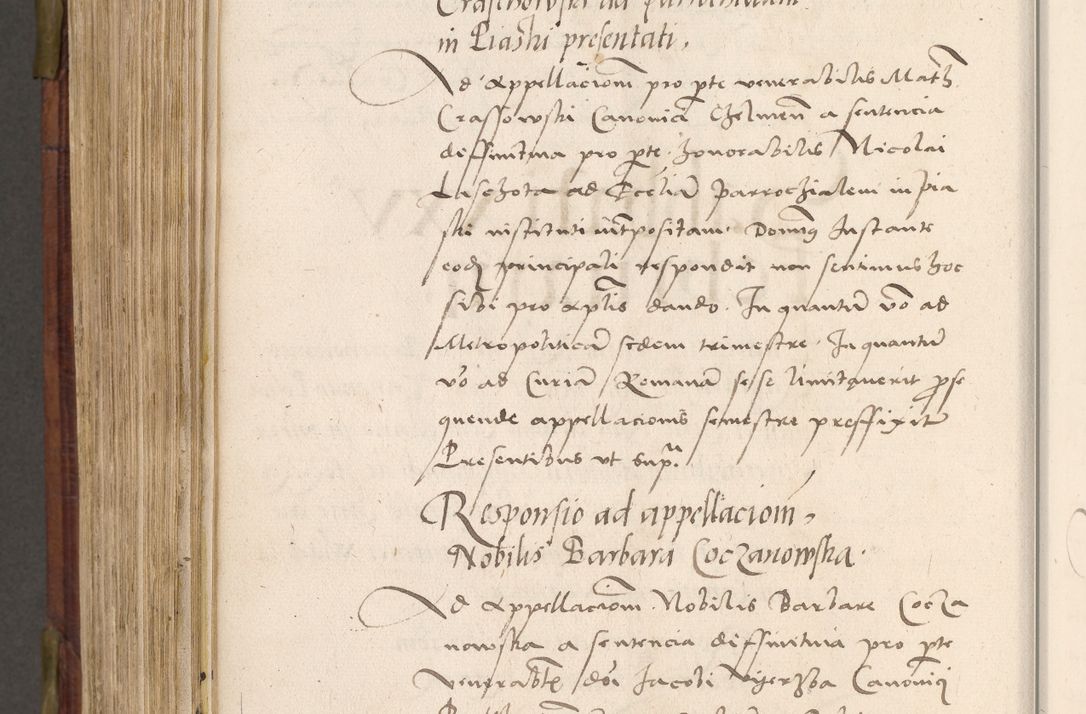 in Piaski presentati,
Ad Appellaciom̄ pro pte venerabilis Math.
Crassowski Canonici Chelmen̄ a sentencia
deffinitiua pro pte honorabilis Nicolai
Laschota ad Eccliā parrochialem in pia
ski instituti intpositam. Domng Instante
eodē principali respondit non sentimus hoc
sibi pro aplis dando. In quantū vo ad
Metropoliticā sedem trimestre. In quantū
vo ad Curiā Romanā sese limitauerit prose
quende appellacionis semestre preffixit
Presentibus vt supra.
Responsio ad appellaciom̄,
Nobilis Barbara Coczanowska.
Ad Appellaciom̄ Nobilis Barbare Cocza
nowska a sentencia deffinitiua pro pte
Venerablis dni Jacobi Canonici